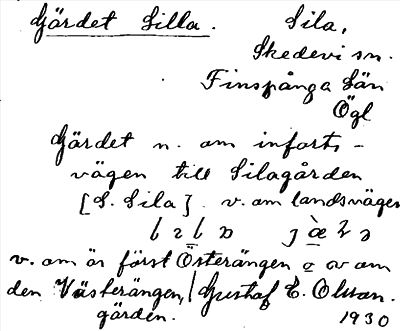 Gärdet Silla. Sila,
Skedevi sn.
Finspånga län
Ögl
Gärdet n. om infarts-
vägen till Silagården
[S. Sila]. v. om landsvägen
v. om är först Österängen o av om
den Västerängen, Gustaf E. Olsson.
gärden. 1930